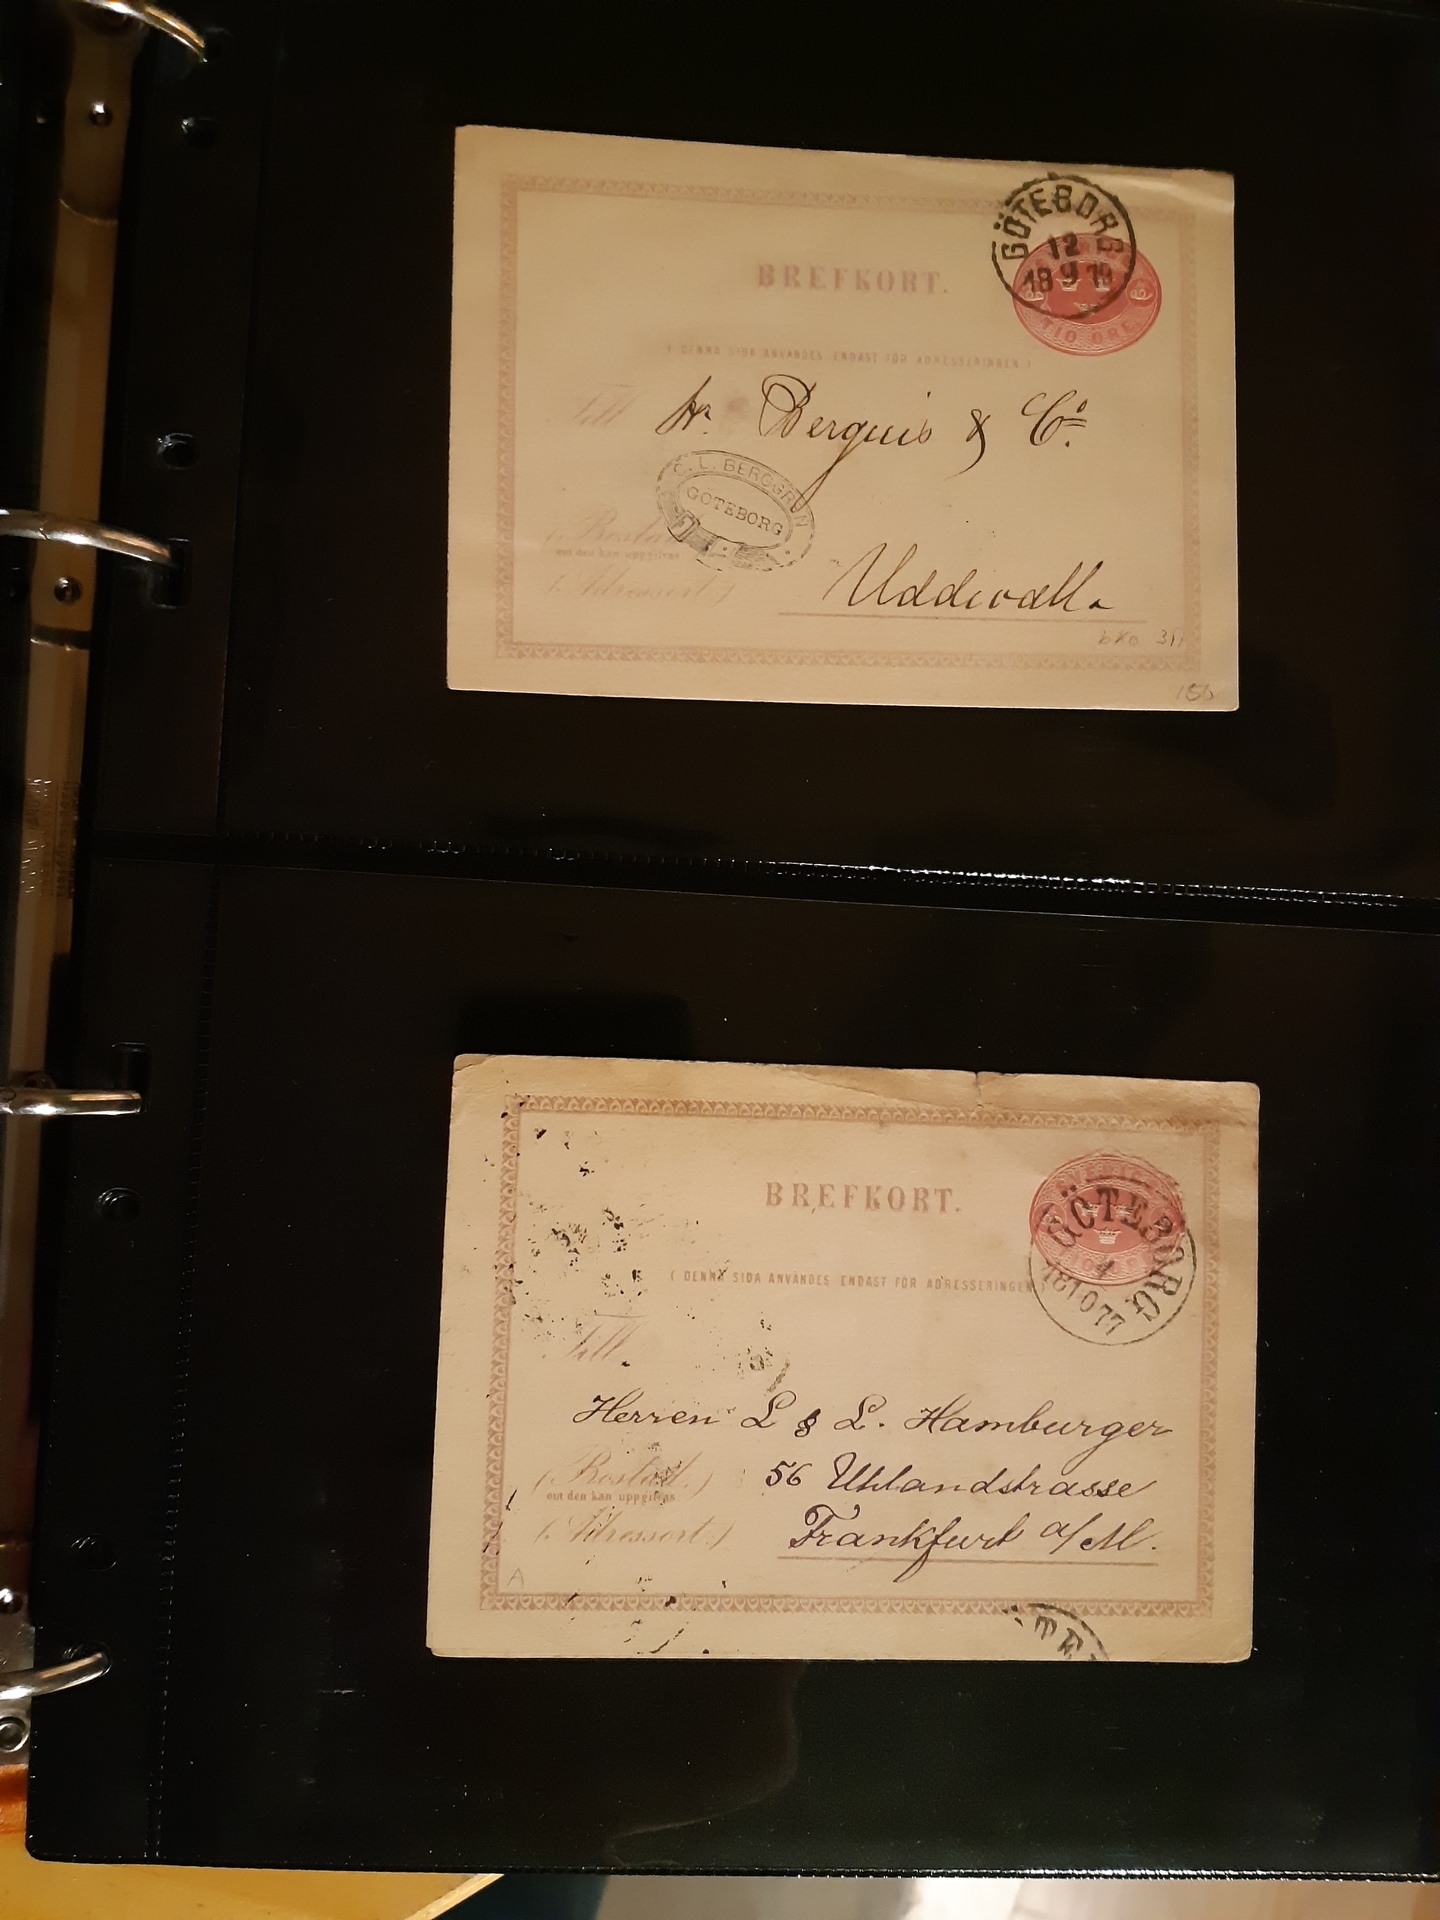 GÖTEBORG
12
18 9 79
TIO ÖRE
BREFKORT.
( DENNA SIDA ANVÄNDES ENDAST FÖR ADRESSERINGEN )
Till Hr. Berquis & Co.
C. L. BERGGREN
GÖTEBORG
(Bostad
om den kan uppgifvas
(Adressort.)
Uddevalla
bKe
GÖTEBORG
4
18 10 77
BREFKORT.
( DENNA SIDA ANVÄNDES ENDAST FÖR ADRESSERINGEN )
Till
Herren L & L. Hamburger
(Bostad.) 56 Uhlandstrasse
om den kan uppgifvas
(Adressort.) Frankfurt a/M.
A
ÖTE